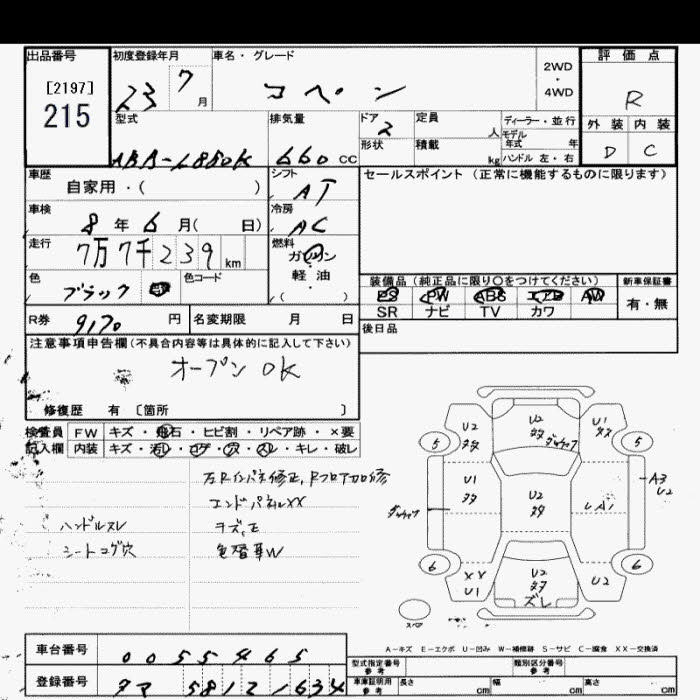 出品番号
[2197]
215
初度登録年月
23 7 月
車名・グレード
コペン
2WD
・
4WD
評価点
R
外装 内装
D C
型式
ABA-L880K
排気量
660 cc
ドア
2
形状
定員
人
積載
kg
ディーラー・並行
モデル
年式 年
ハンドル 左・右
車歴
自家用・( )
シフト
AT
セールスポイント (正常に機能するものに限ります)
車検
8 年 6 月( 日)
冷房
AC
走行
7万7千239 km
燃料
ガソリン
軽油
・( )
色
ブラック
色コード
装備品 (純正品に限り○をつけてください)
PS PW ABS エアB AW
SR ナビ TV カワ
新車保証書
有・無
R券
9170 円
名変期限 月 日
後日品
注意事項申告欄 (不具合内容等は具体的に記入して下さい)
オープン OK
修復歴 有 〔箇所 〕
検査員 FW キズ・飛石・ヒビ割・リペア跡・×要
記入欄 内装 キズ・汚レ・コゲ・穴・スレ・キレ・破レ
エンドパネルXX
ハンドルスレ
シートコゲ穴
U2
U2
U1
5
5
U1
U2
A3
U2
6
6
XX
U1
U2
ズレ
U2
スペア
A－キズ E－エクボ U－凹み W－補修跡 S－サビ C－腐食 XX－交換済
車台番号
0055465
登録番号
581 21634
型式指定番号
参考
類別区分番号
参考
車庫証明用
参考
長さ cm
幅 cm
高さ cm